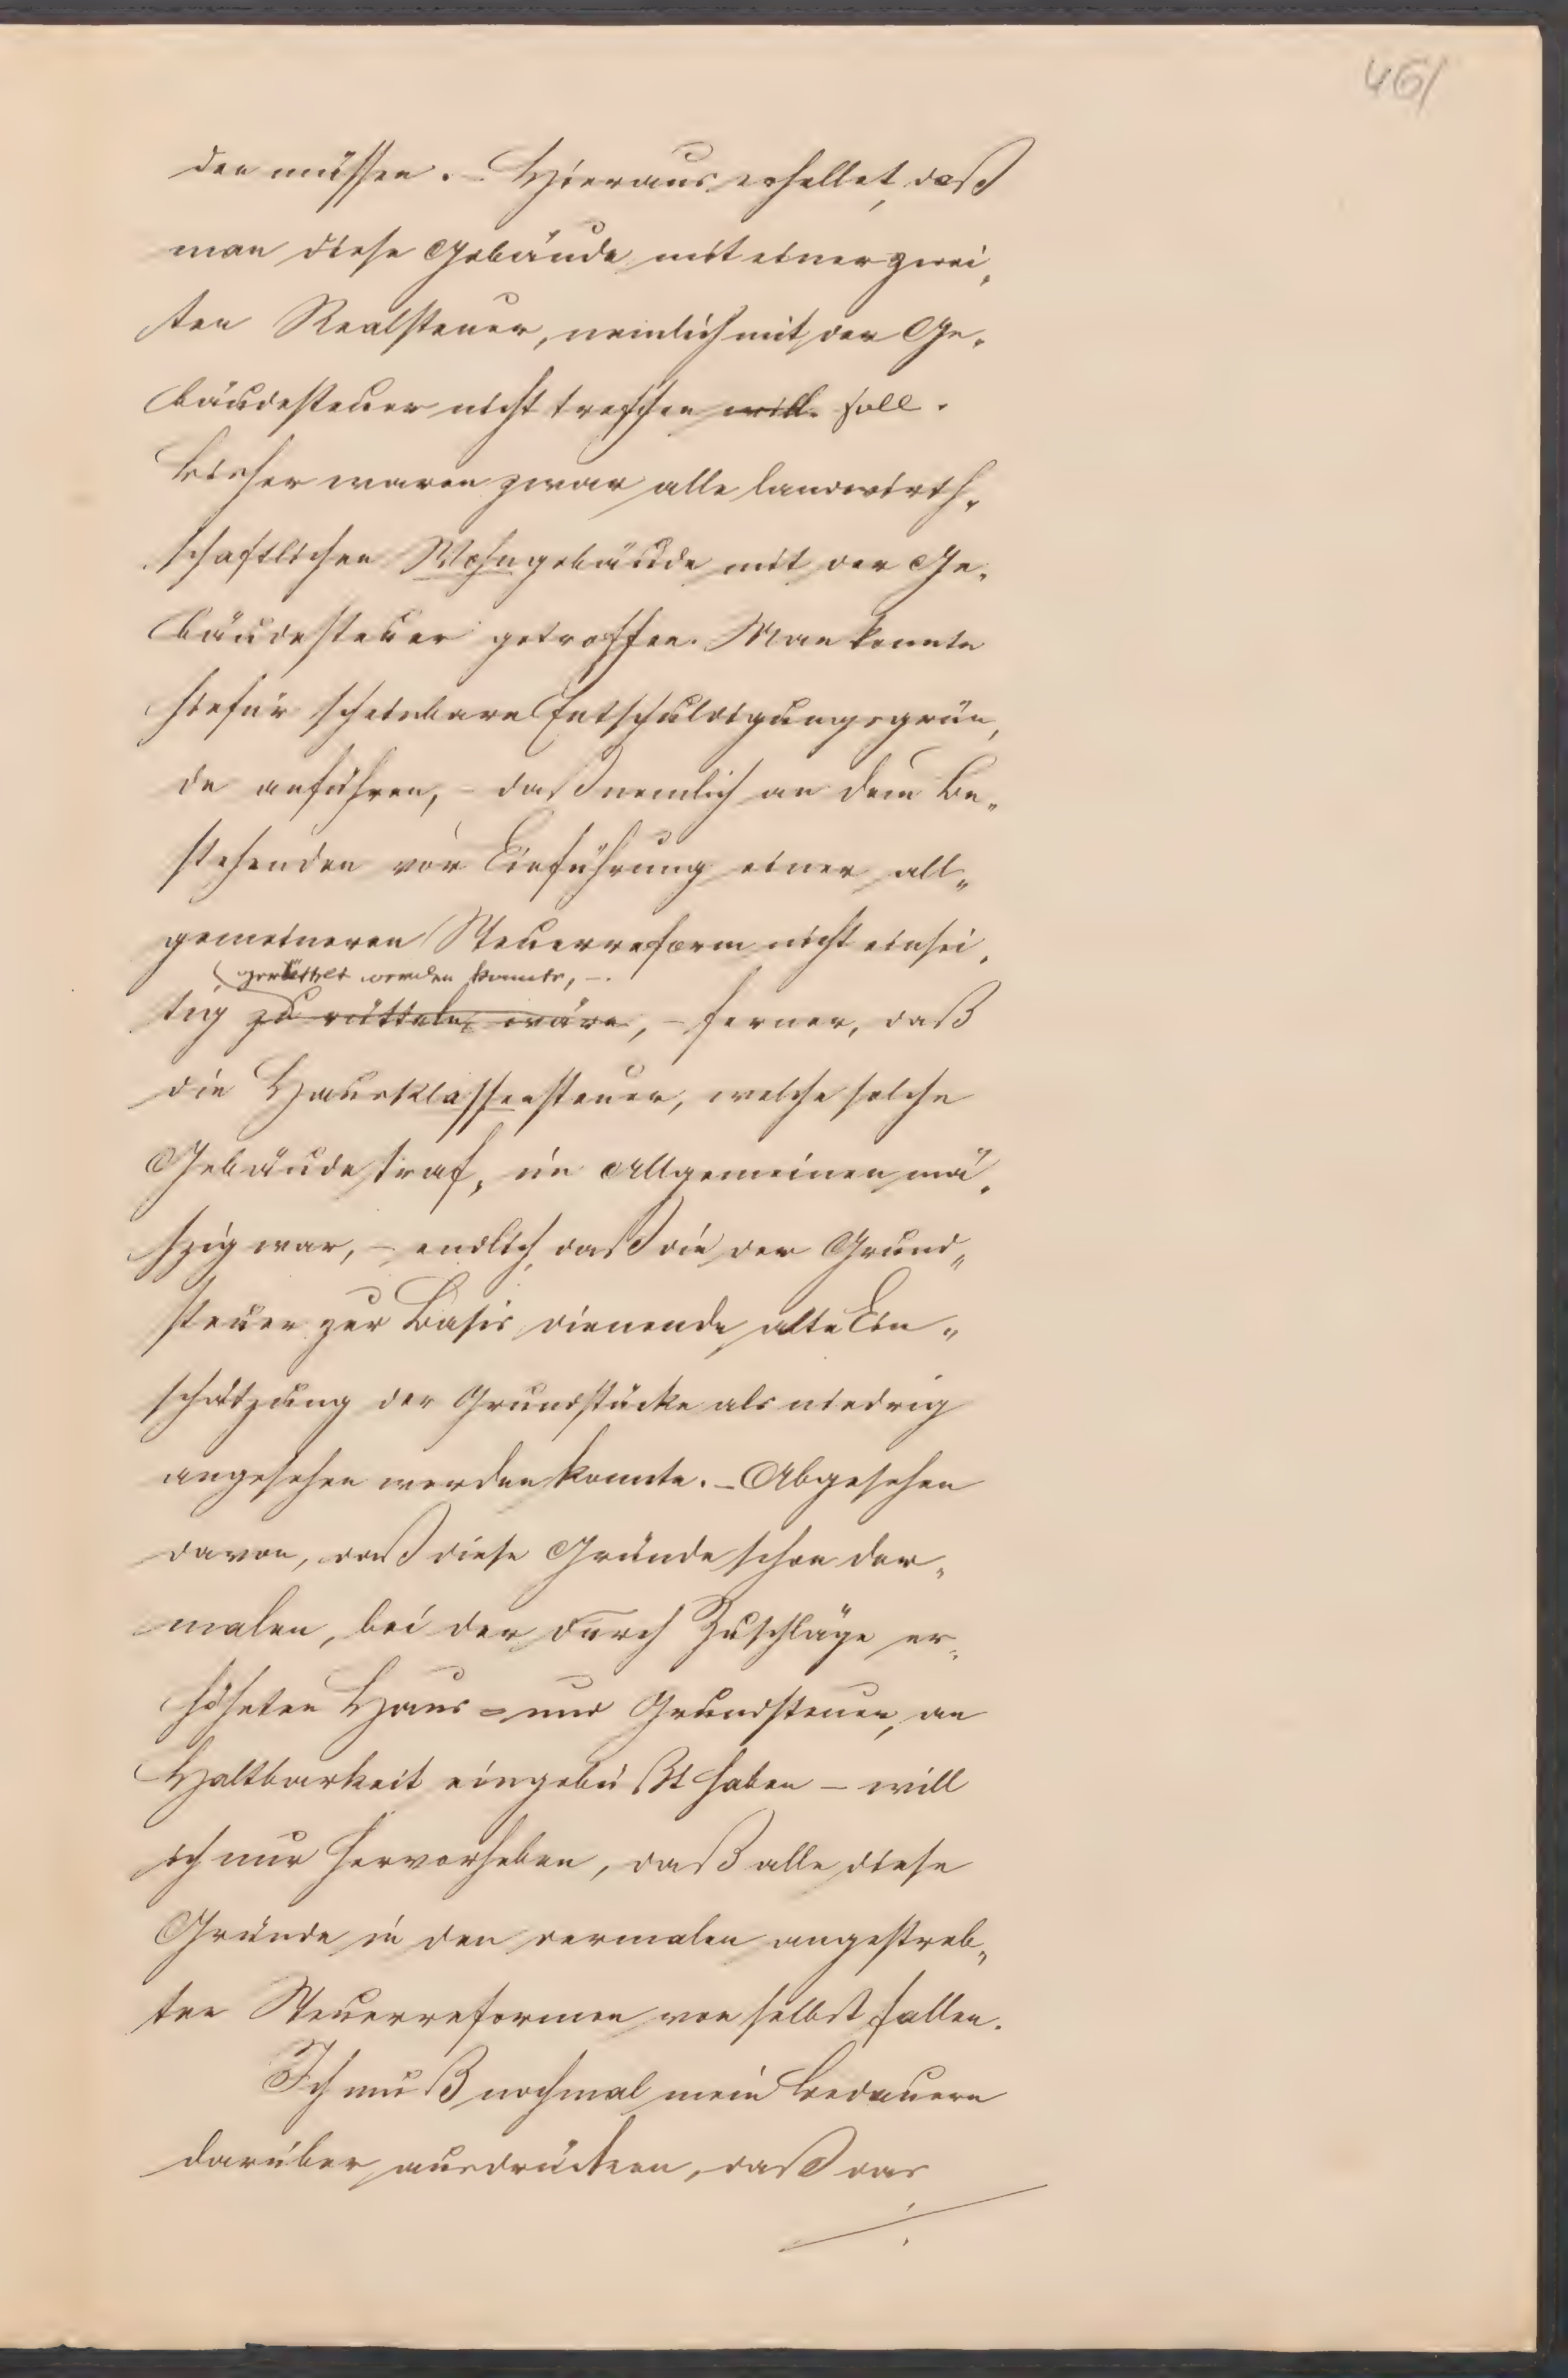 461
den müssen. – Hieraus erhellet, daß
man diese Gebäude mit einer zwei„
ten Realsteuer, nemlich mit der Ge„
bäudesteuer nicht treffen will soll.
Bisher waren zwar alle landwirth„
schaftlichen Wohngebäude mit der Ge„
bäudesteuer getroffen. Man konnte
hiefür scheinbare Entschuldigungsgrün„
de anführen, – daß nemlich an dem Be„
stehenden vor Einführung einer all„
gemeineren Steuerreform nicht einsei„
gerüttelt werden konnte, –
tig zu rütteln wäre, – ferner, daß
die Hausklassensteuer, welche solche
Gebäude traf, im Allgemeinen mä„
szig war, – endlich, daß die der Grund„
steuer zur Basis dienende alte Ein„
schätzung der Grundstücke als niedrig
angesehen werden konnte. – Abgesehen
davon, daß diese Gründe schon der„
malen, bei der durch Zuschläge er„
höheten Haus- und Grundsteuer, an
Haltbarkeit eingebüßt haben – will
ich nur hervorheben, daß alle diese
Gründe in den dermalen angestreb„
ten Steuerreformen von selbst fallen.
Ich muß nochmal mein Bedauern
darüber ausdrücken, daß das